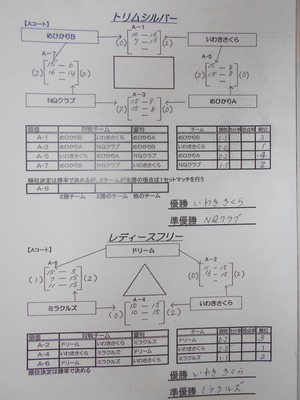 トリムシルバー
【Aコート】
めひかりB
A-1
いわきさくら
(0) 10 - 15 (2)
7 - 15
A-7
15 - 6
(2) 16 - 14 (0)
A-5
(2) 15 - 3 (0)
15 - 8
NQクラブ
A-3
めひかりA
(2) 15 - 9 (0)
15 - 8
順番 対戦チーム 審判
A-1 めひかりB いわきさくら めひかりA
A-3 めひかりA NQクラブ いわきさくら
A-5 いわきさくら めひかりA NQクラブ
A-7 めひかりB NQクラブ いわきさくら
チーム 勝敗 セット率 得点率 順位
めひかりB 3
いわきさくら 1
めひかりA 4
NQクラブ 1-1 2
順位決定は勝率で決めるが、2チームが全勝の場合は1セットマッチを行う
A-8
2勝チーム 2勝チーム 他のチーム
優勝 いわきさくら
準優勝 NQクラブ
レディースフリー
【Aコート】
ドリーム
A-6
15 - 5
(1) 7 - 15 (2)
11 - 15
A-2
(0) 11 - 15 (2)
ミラクルズ
A-4
いわきさくら
(0) 10 - 15 (2)
10 - 15
順番 対戦チーム 審判
A-2 ドリーム いわきさくら ミラクルズ
A-4 いわきさくら ミラクルズ ドリーム
A-6 ドリーム ミラクルズ いわきさくら
チーム 勝敗 セット率 得点率 順位
ドリーム 0-2 3
いわきさくら 1
ミラクルズ 1-1 2
順位決定は勝率で決める
優勝 いわきさくら
準優勝 ミラクルズ